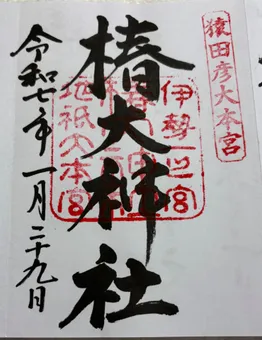 猿田彦大本宮
伊勢一之宮
椿大神社
地祇大本宮
令和七年一月二十九日